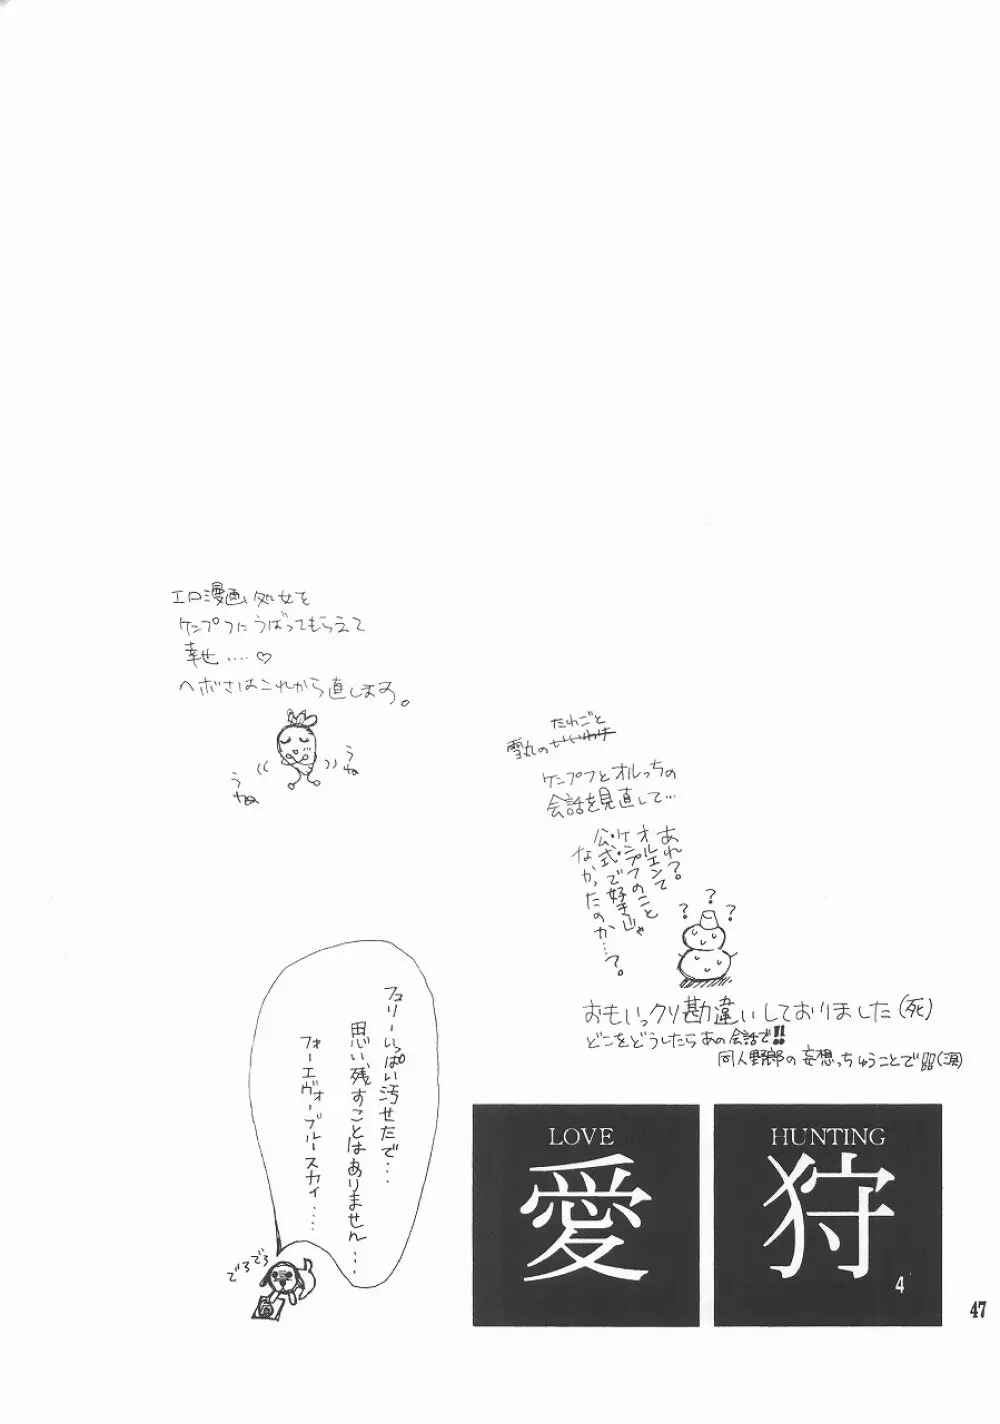 エロ漫画処女を
ケンプフにうばってもらえて
幸せ....♡
ヘボさはこれから直します。
うね
うね
たわごと
雪丸のいいわけ
ケンプフとオルっちの
会話を見直して...
あれ?
オルエンて
ケンプフのこと
公式で好きじゃ
なかったのか...?。
? ? ?
おもいっクソ勘違いしておりました(死)
どこをどうしたらあの会話で!!
同人野郎の妄想っちゅうことで(涙)
フュリーいっぱい汚せたで...
思い残すことはありません...
フォーエヴァーブルースカイ....
でろでろ
LOVE
愛
HUNTING
狩
4
47